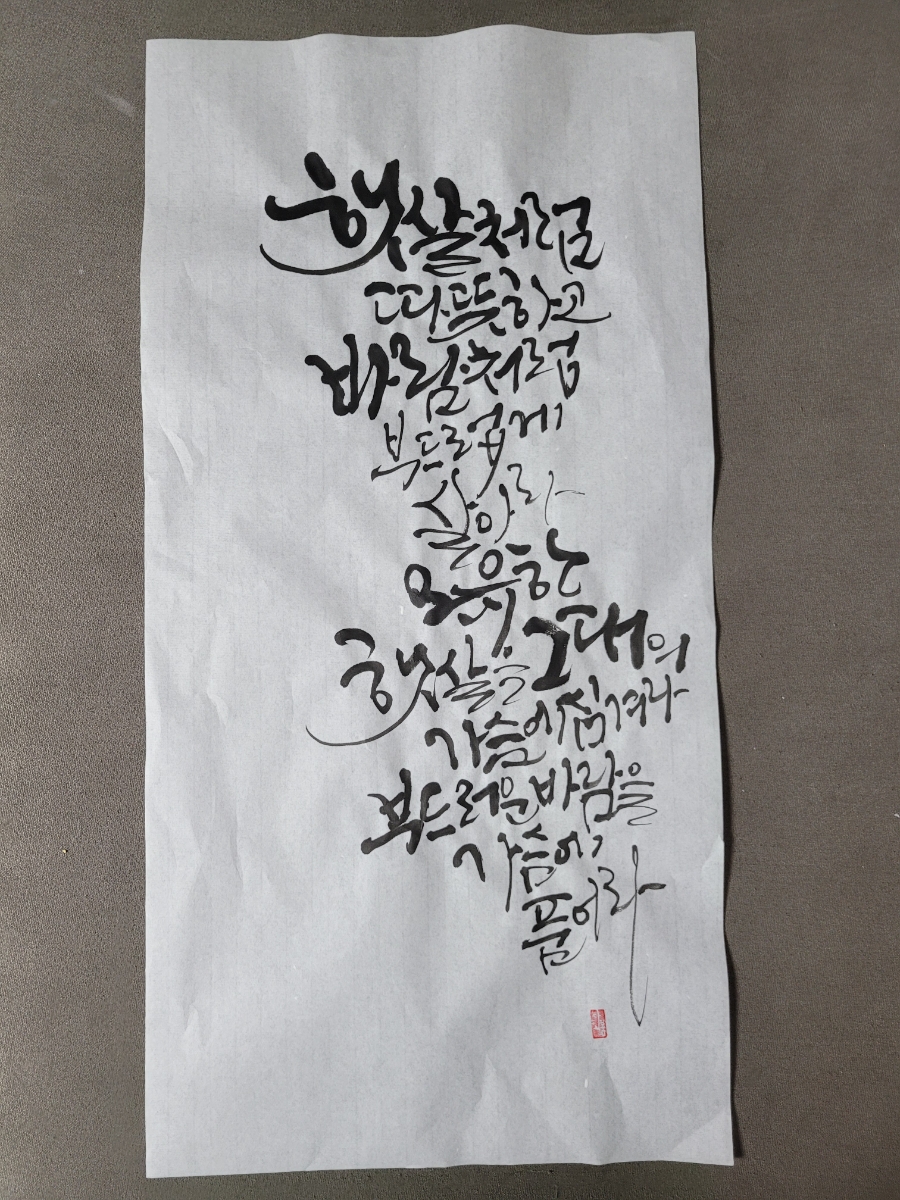 햇살처럼
따뜻하고
바람처럼
부드럽게
살아라
오육한
햇살을 그대의
가슴에 섬겨라
부드러운 바람을
가슴에
품어라